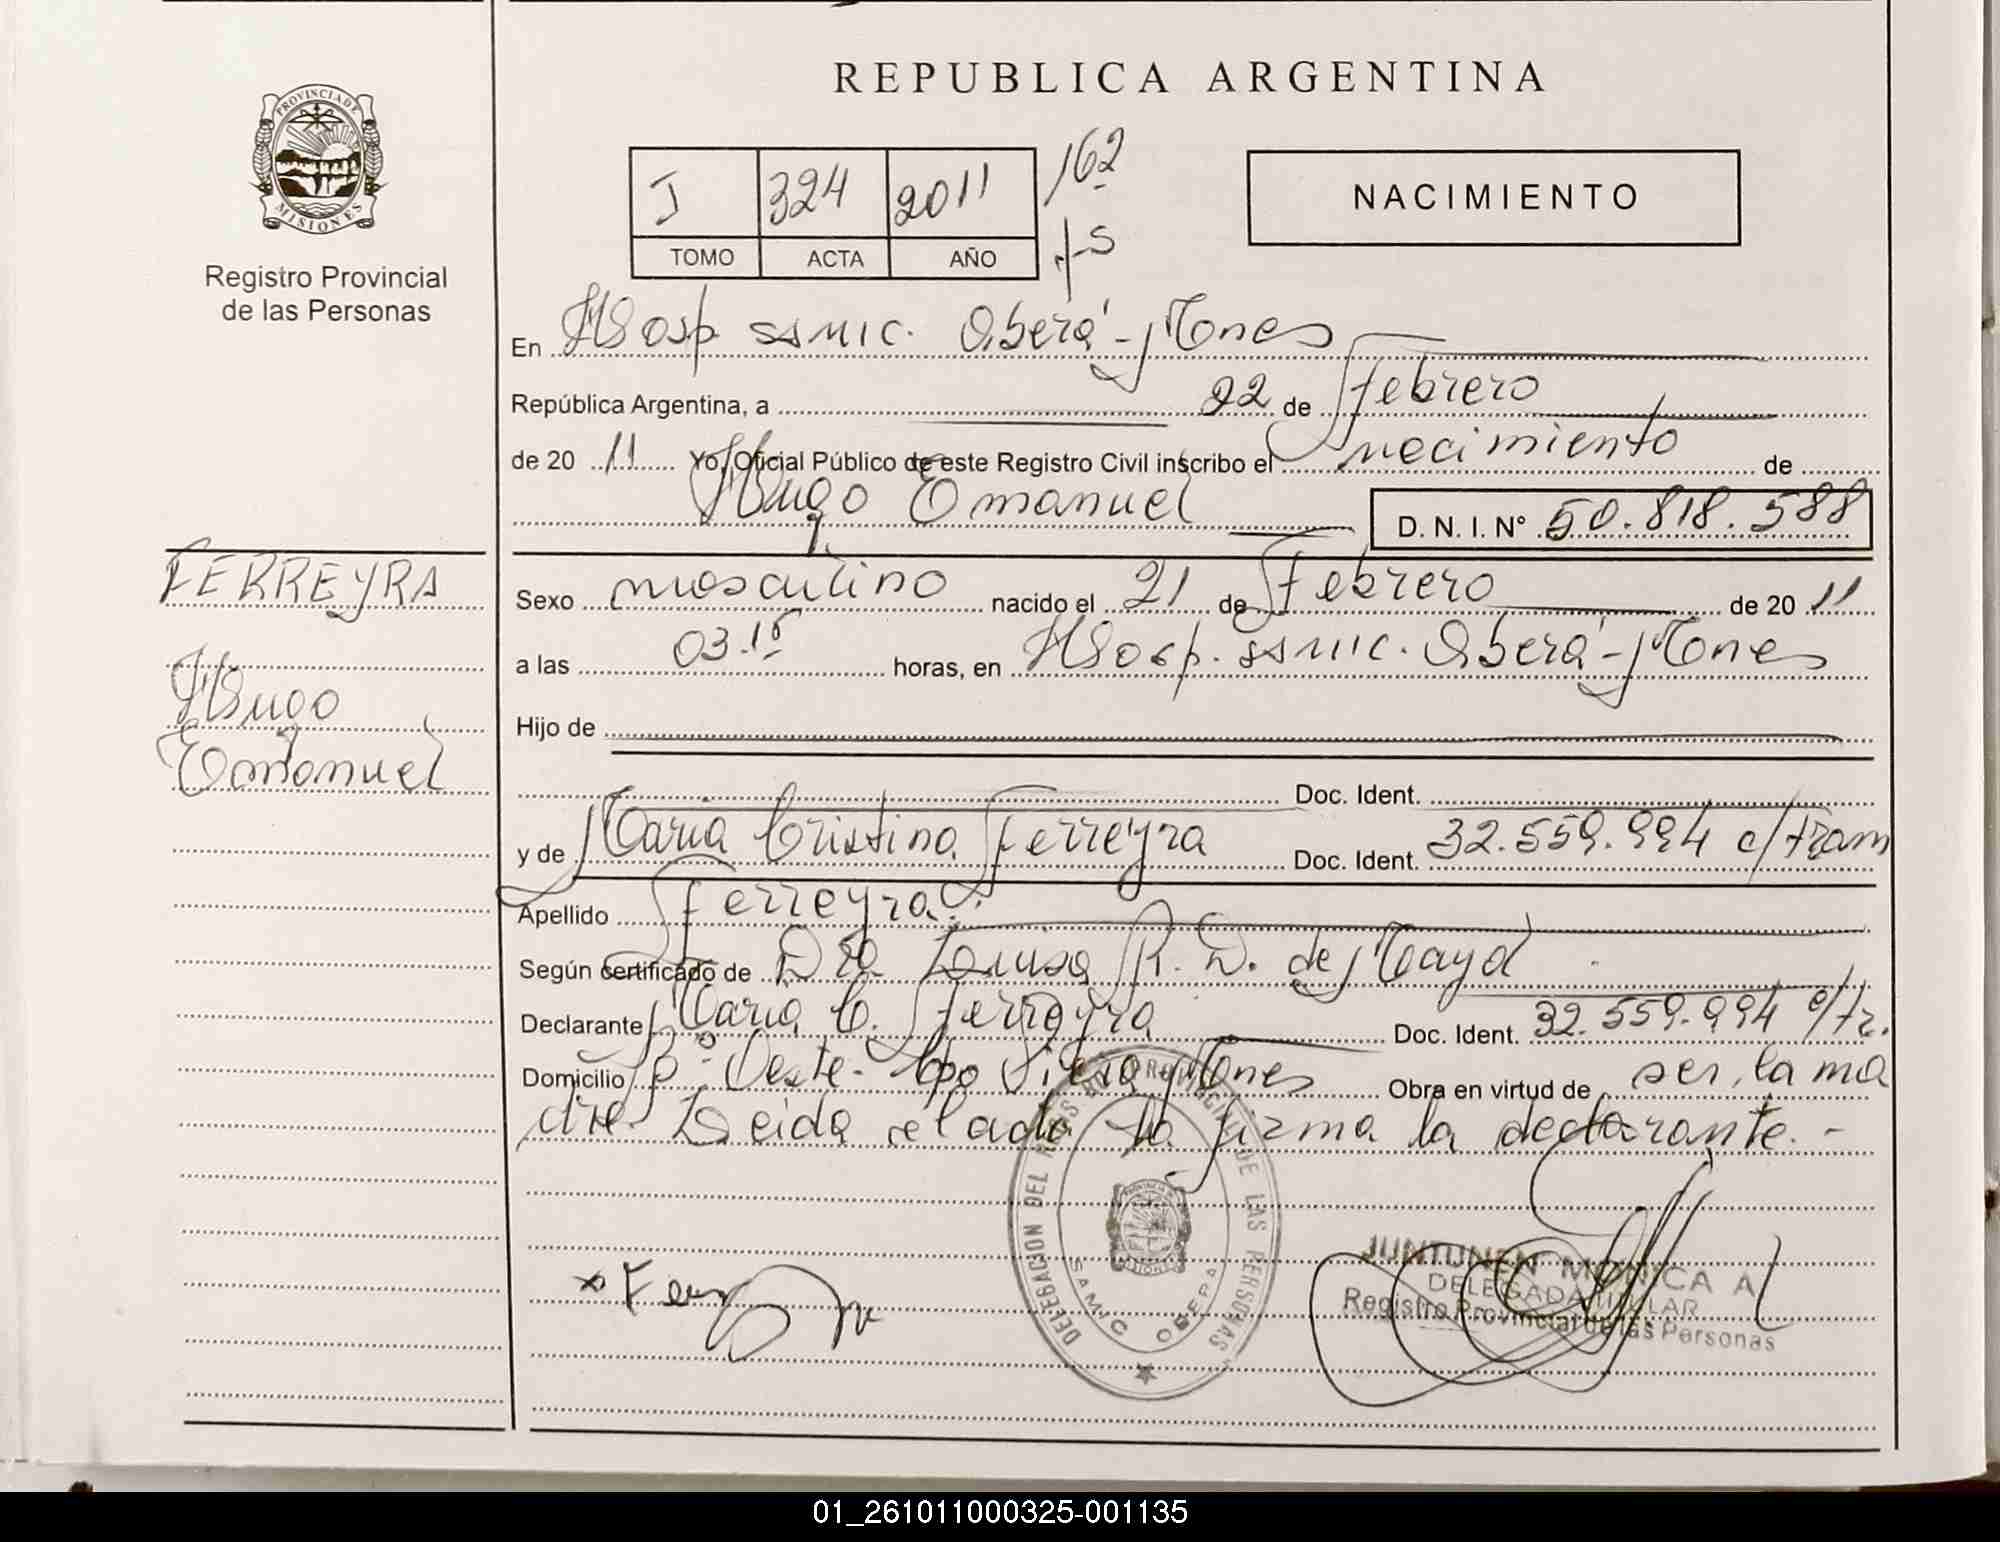 REPUBLICA ARGENTINA
PROVINCIA DE
MISIONES
Registro Provincial
de las Personas
J 324 2011 162
TOMO ACTA AÑO
NACIMIENTO
En Hosp. SAMIC. Oberá - Mones
República Argentina, a 22 de Febrero
de 2011 Yo, Oficial Público de este Registro Civil inscribo el nacimiento de
Hugo Emanuel D. N. I. N° 50.818.588
FERREYRA
Hugo
Emanuel
Sexo masculino nacido el 21 de Febrero de 2011
a las 03.15 horas, en Hosp. SAMIC. Oberá - Mones
Hijo de
Doc. Ident.
y de Maria Cristina Ferreyra Doc. Ident. 32.559.994 c/tram
Apellido Ferreyra.
Según certificado de Dra. Luisa R. D. de Mayol
Declarante Maria C. Ferreyra Doc. Ident. 32.559.994 c/tr.
Domicilio Bº Oeste - Cpo Viera Mones Obra en virtud de ser la ma
dre. Leida el acta la firma la declarante. -
DELEGACION DEL REGISTRO PROVINCIAL DE LAS PERSONAS
SAMIC OBERA
x Ferreyra
JUNTUNEN MONICA A
DELEGADA TITULAR
Registro Provincial de las Personas
01_261011000325-001135